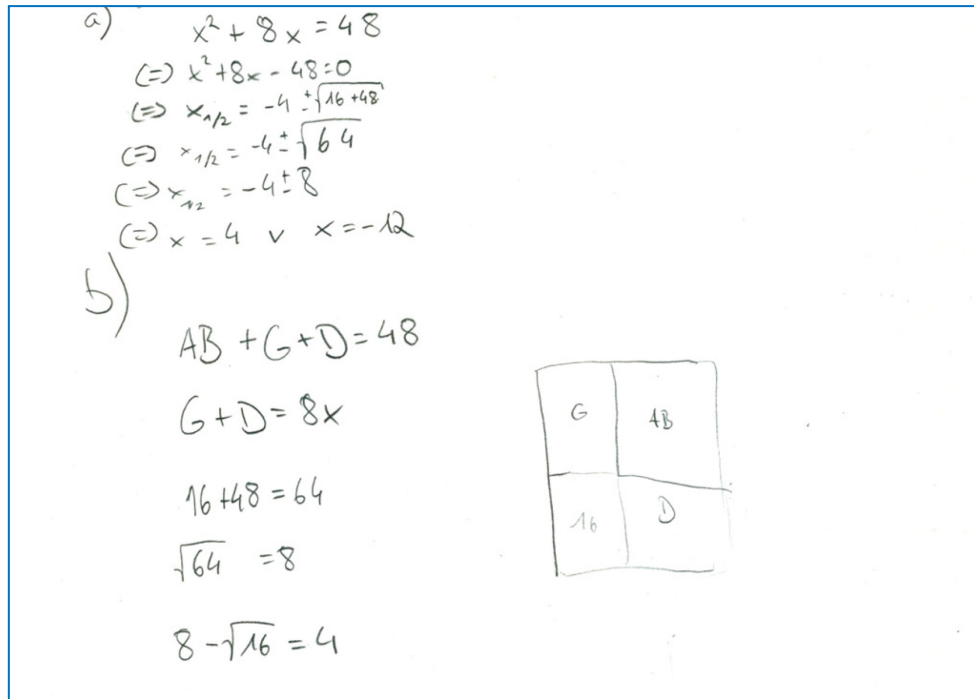 a) x² + 8x = 48
(=) x²+8x - 48=0
(=) x₁/₂ = -4 ± √16+48
(=) x₁/₂ = -4 ± √64
(=) x₁/₂ = -4 ± 8
(=) x = 4 v x = -12
b)
AB + G + D = 48
G + D = 8x
16 + 48 = 64
√64 = 8
8 - √16 = 4
G AB
16 D